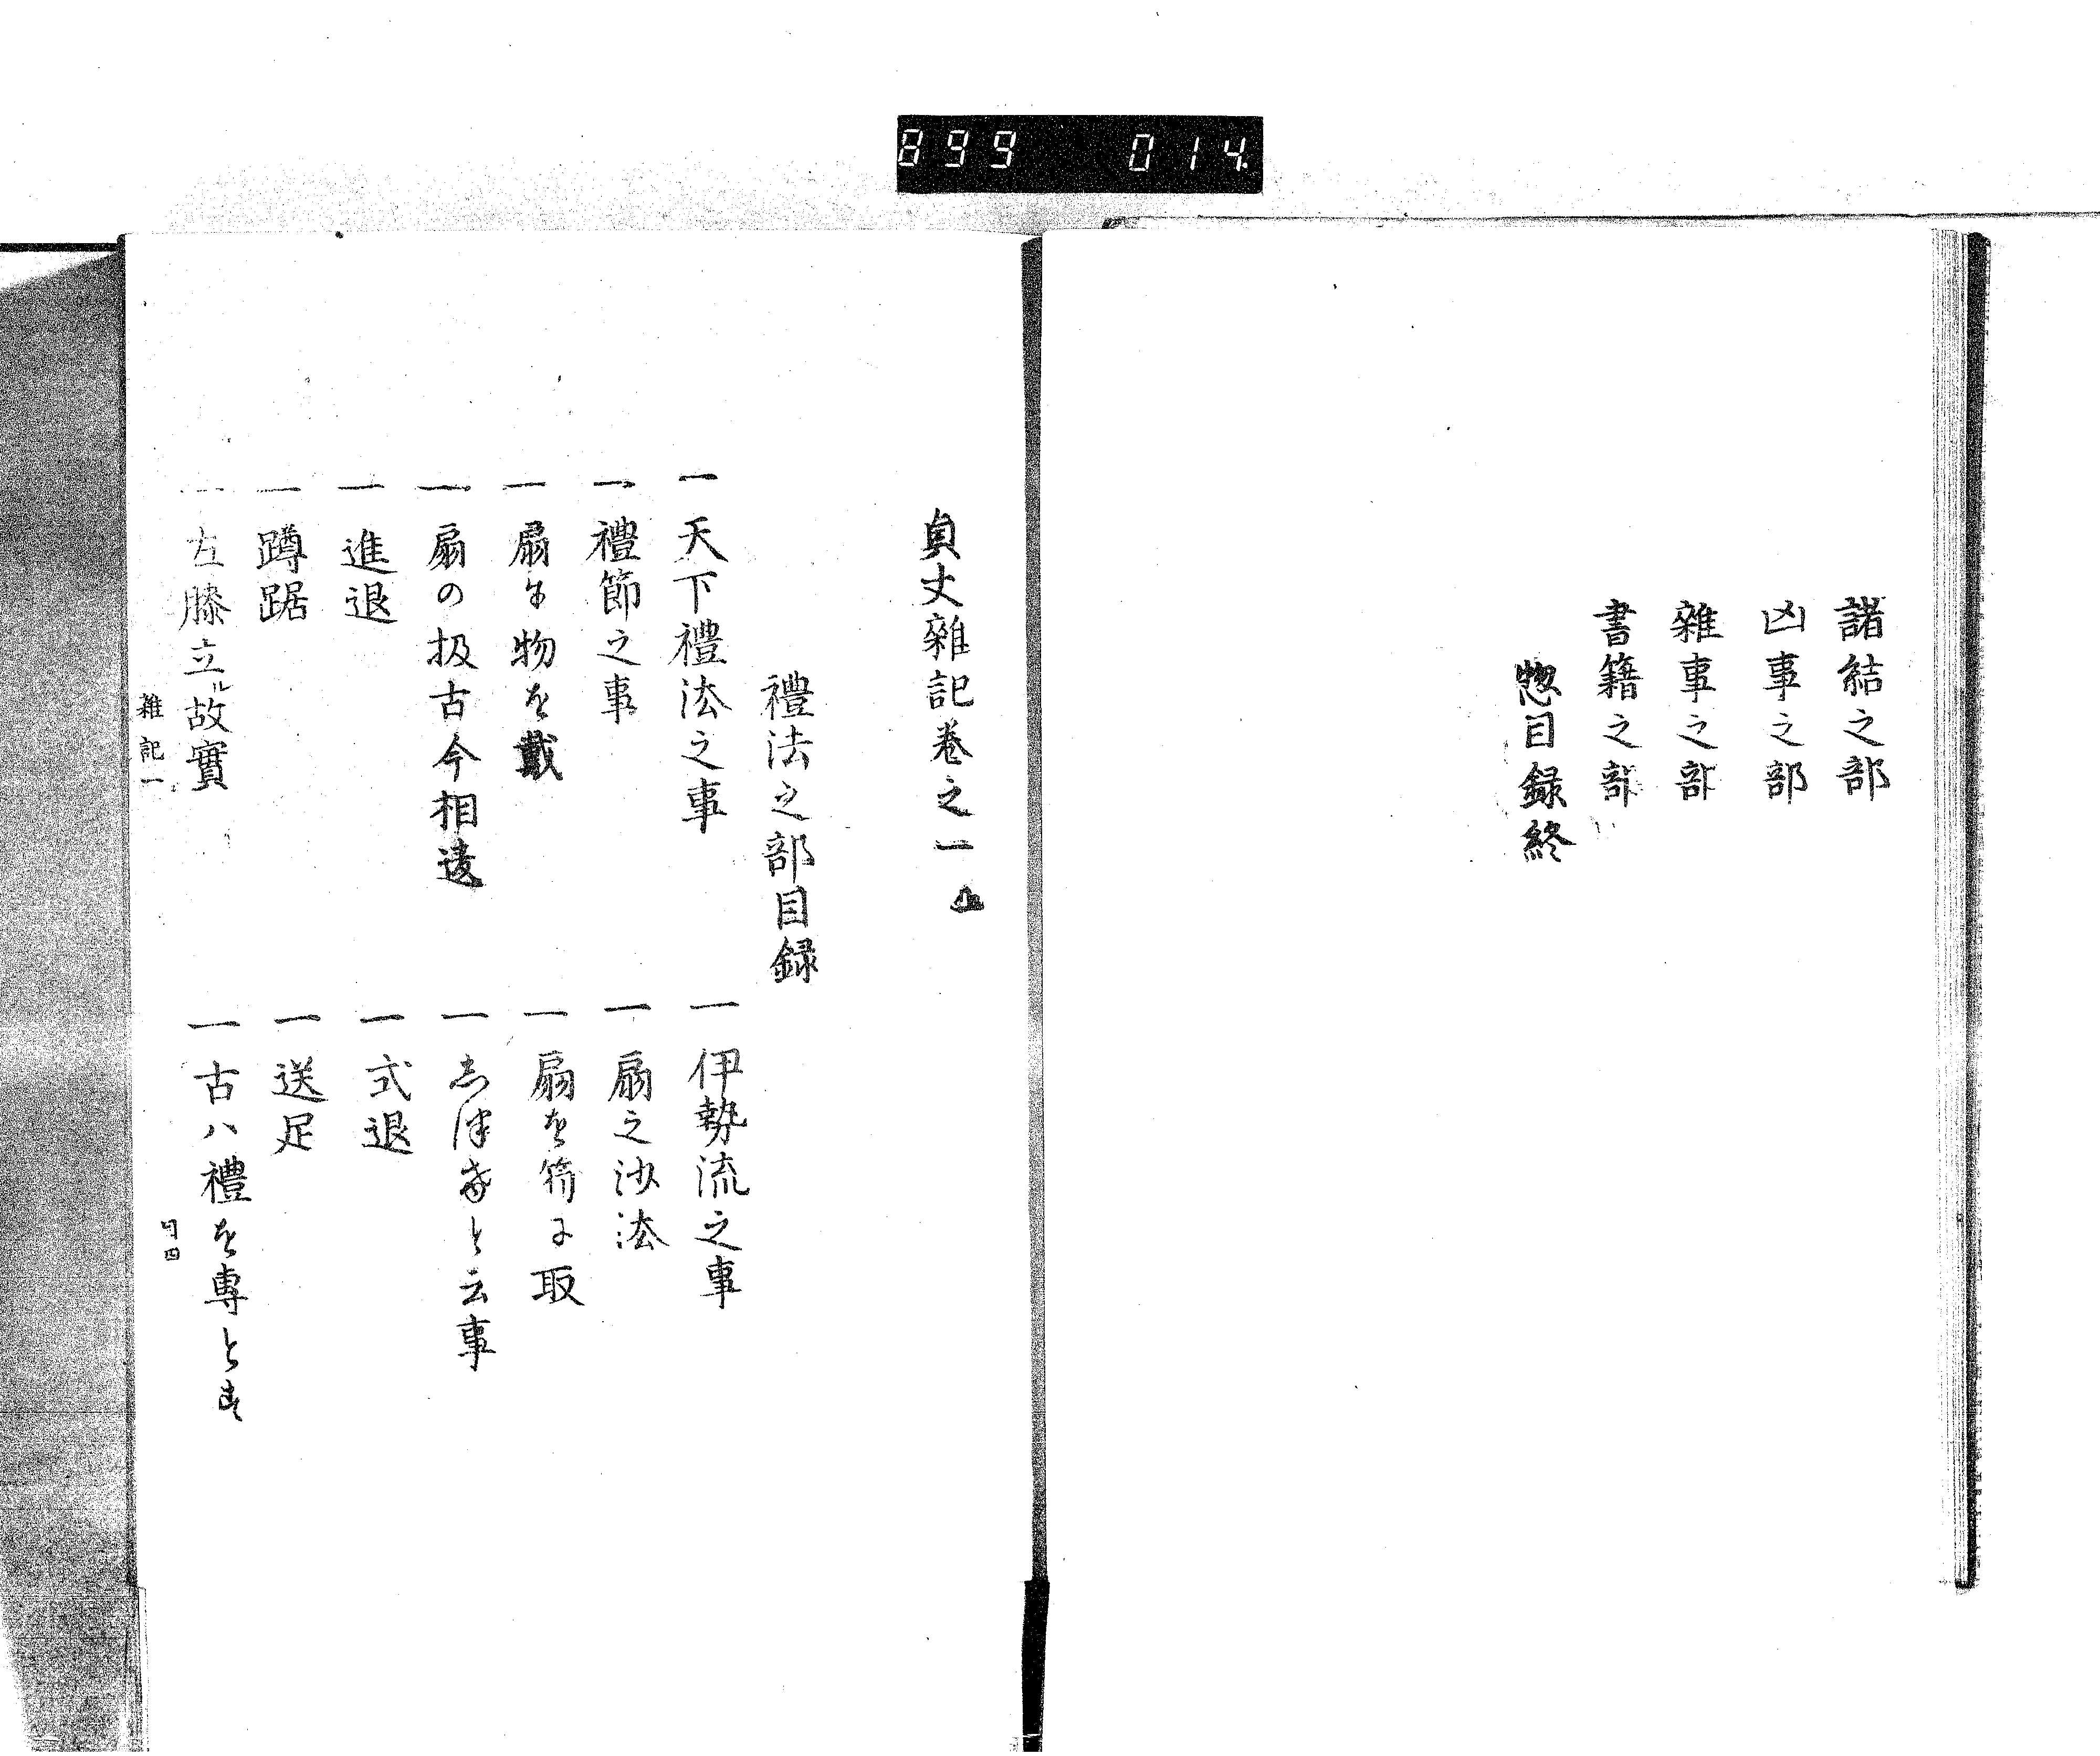 899 014
諸結之部
凶事之部
雜事之部
書籍之部
惣目録終
貞丈雜記巻之一 上
禮法之部目録
一 天下禮法之事
一 伊勢流之事
一 禮節之事
一 扇之沙法
一 扇に物を戴
一 扇を笏に取
一 扇の扱古今相違
一 志津まると云事
一 進退
一 式退
一 蹲踞
一 送足
一 左膝立ル故實
一 古ハ禮を専とす
雜記一